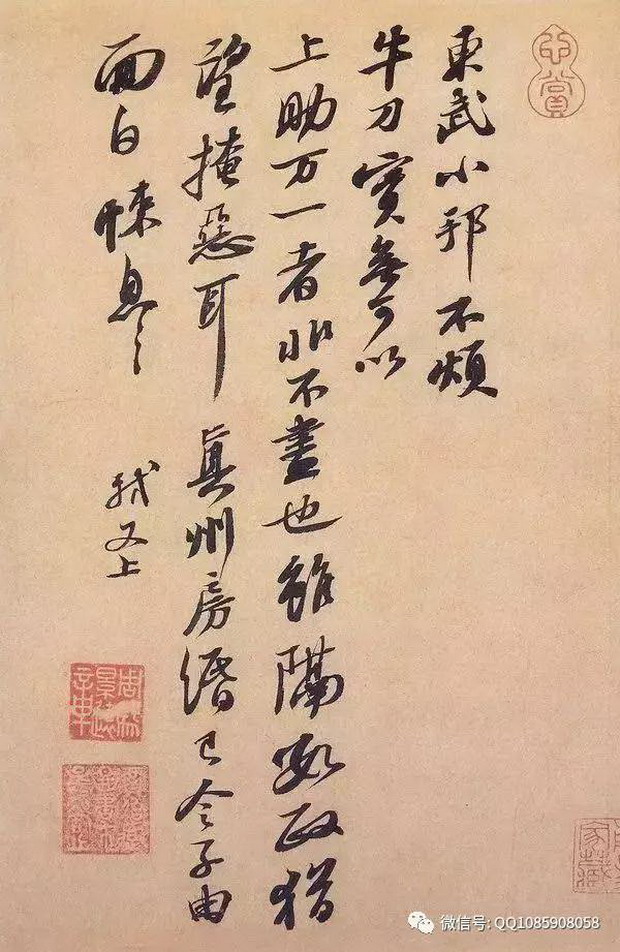 東武小邦不煩
牛刀實無可以
上助万一者非不盡也雖隔數政猶
望掩惡耳真州房緡已令子由
面白悚息〻
軾又上
心賞
微信号: QQ1085908058